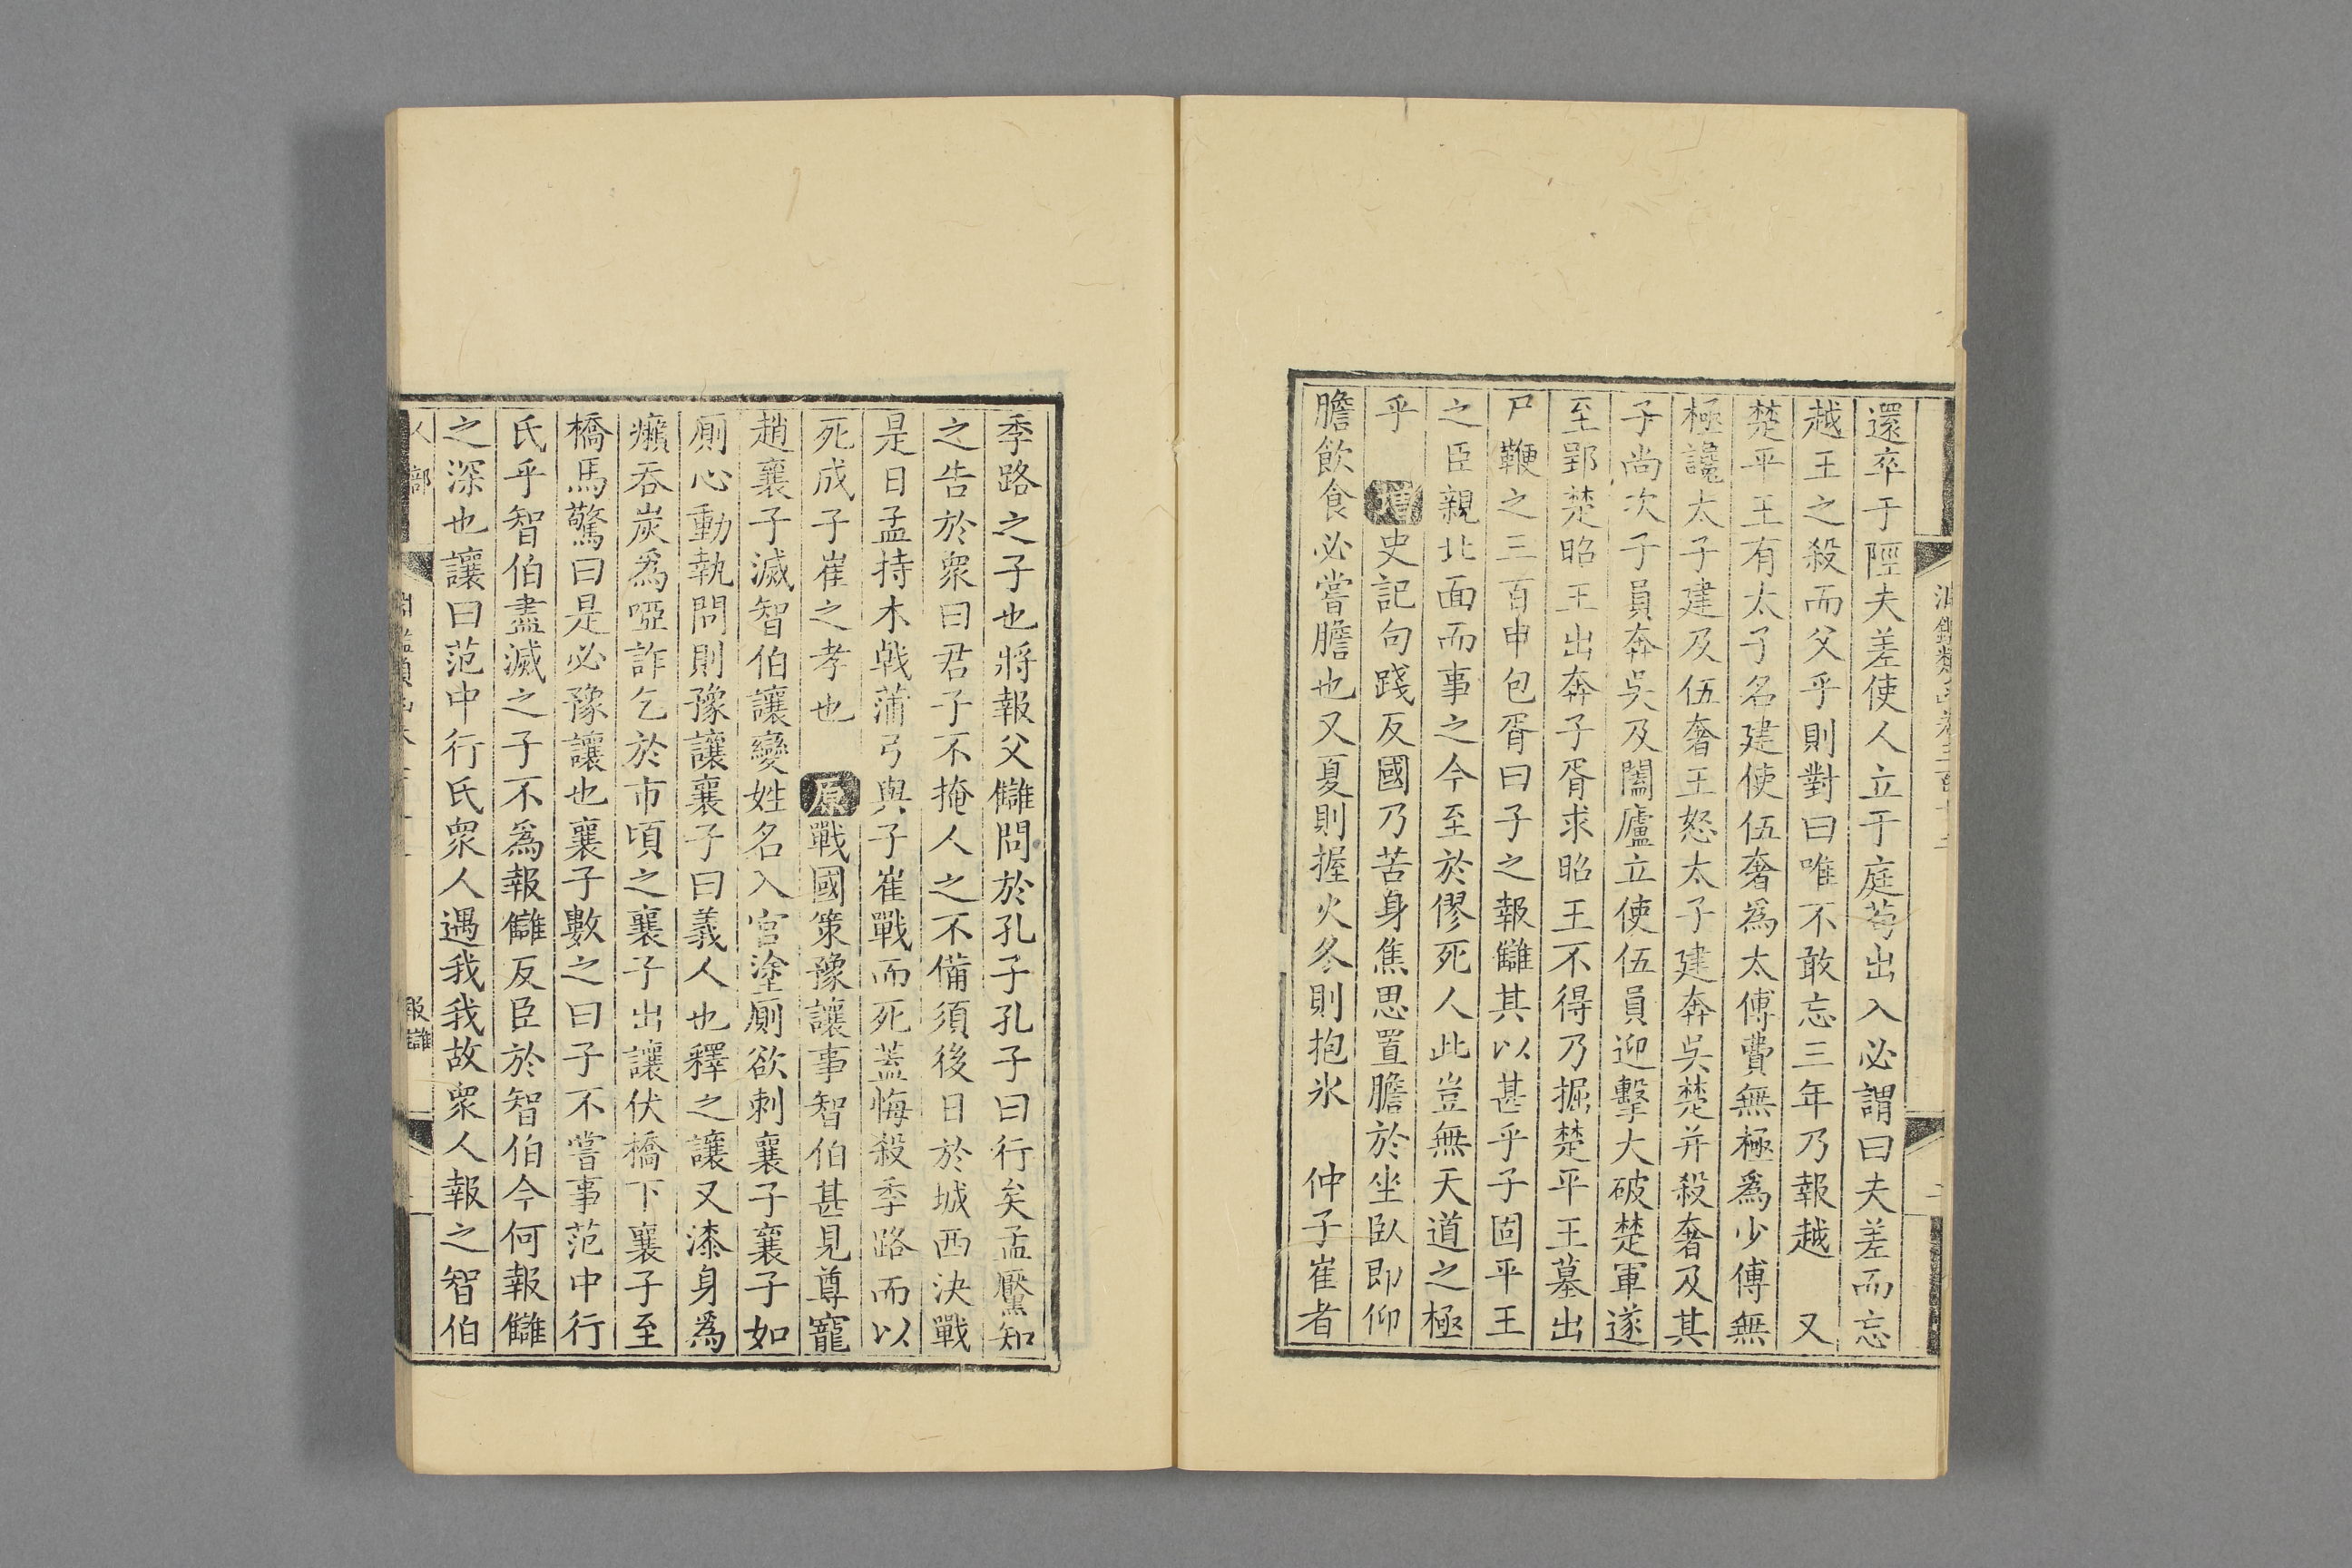 還卒于陘夫差使人立于庭茍出入必謂曰夫差而忘
越王之殺而父乎則對曰唯不敢忘三年乃報越 又
楚平王有太子名建使伍奢爲太傅費無極爲少傅無
極讒太子建及伍奢王怒太子建奔吳楚并殺奢及其
子尚次子員奔吳及闔廬立使伍員迎擊大破楚軍遂
至郢楚昭王出奔子胥求昭王不得乃掘楚平王墓出
尸鞭之三百申包胥曰子之報讎其以甚乎子固平王
之臣親北面而事之今至於僇死人此豈無天道之極
乎 增史記句踐反國乃苦身焦思置膽於坐臥即仰
膽飲食必嘗膽也又夏則握火冬則抱氷 仲子崔者
季路之子也將報父讎問於孔子孔子曰行矣孟黶知
之告於衆曰君子不掩人之不備須後日於城西決戰
是日孟持木戟蒲弓與子崔戰而死蓋悔殺季路而以
死成子崔之孝也 原戰國策豫讓事智伯甚見尊寵
趙襄子滅智伯讓變姓名入宮塗厠欲刺襄子襄子如
厠心動執問則豫讓襄子曰義人也釋之讓又漆身爲
癩吞炭爲啞詐乞於市頃之襄子出讓伏橋下襄子至
橋馬驚曰是必豫讓也襄子數之曰子不嘗事范中行
氏乎智伯盡滅之子不爲報讎反臣於智伯今何報讎
之深也讓曰范中行氏衆人遇我我故衆人報之智伯
人部
報讎